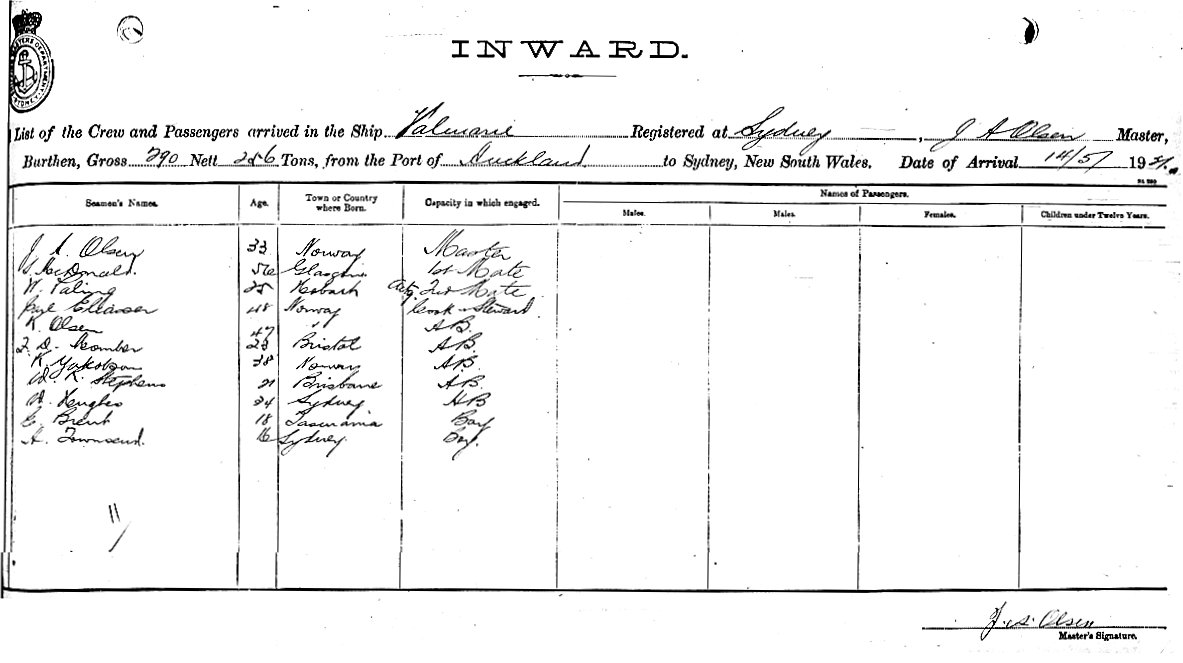 INWARD.
List of the Crew and Passengers arrived in the Ship Valmarie Registered at Sydney, J A Olsen Master,
Burthen, Gross 290 Nett 256 Tons, from the Port of Auckland to Sydney, New South Wales. Date of Arrival 14/5/ 192
Seamen's Names. Age. Town or Country where Born. Capacity in which engaged. Names of Passengers.
Males. Males. Females. Children under Twelve Years.
J. A. Olsen 33 Norway Master
McDonald. 56 Glasgow 1st Mate
W. Paling 25 Hobart Actg Mate
48 Norway Cook & Steward.
K. Olsen 47 " A B.
23 Bristol A B.
K. Yakobson 38 Norway A.B.
W. K. Stephens 21 Brisbane A.B.
W. Hughes 24 Sydney AB
C. Brent 18 Tasmania Boy
A. Townsend. 16 Sydney. Boy.
11
J. A. Olsen
Master's Signature.